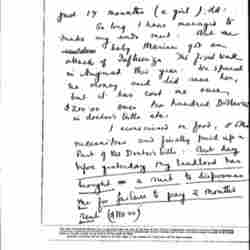 just 17 months (a girl), did.
So long I have managed to
make my ends meet. But
baby Marian got an
attack of Influenza. The first week
in August this year. We spared
no money and did save her,
but it has cost me over
$200.00 over two hundred Dollars
in doctor's bills etc.
I economised on food,
medications and finally paid up a
Part of the Doctor's Bills. But day
before yesterday my landlord has
brought a suit to dispossess
me for failure to pay 2 months
rent ($110.00)